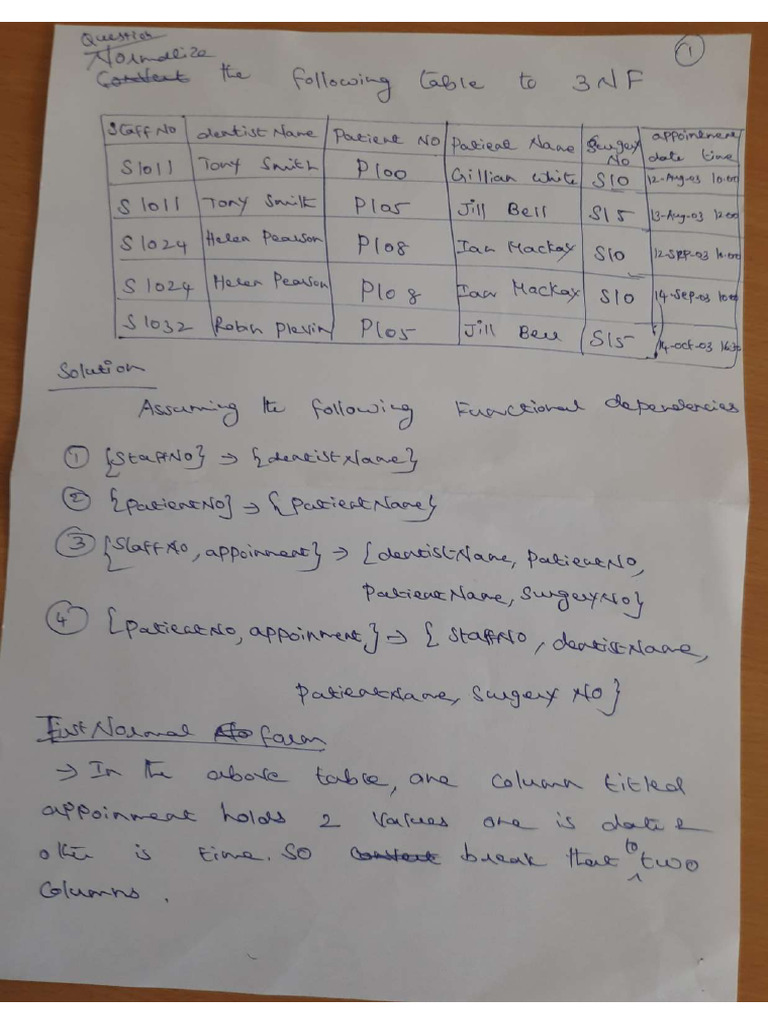 Question
Normalize
Convert the following table to 3NF
1
Staff No dentist Name Patient NO Patient Name Surgery NO appointment date time
S1011 Tony Smith P100 Gillian White S10 12-Aug-03 10:00
S1011 Tony Smith P105 Jill Bell S15 13-Aug-03 12:00
S1024 Helen Pearson P108 Ian Mackay S10 12-SEP-03 10:00
S1024 Helen Pearson P108 Ian Mackay S10 14-Sep-03 10:00
S1032 Robin Plevin P105 Jill Bell S15 14-Oct-03 16:30
Solution
Assuming the following Functional dependencies
① {StaffNO} → {dentistName}
② {PatientNO} → {PatientName}
③ {StaffNo, appoinment} → {dentistName, PatientNO,
PatientName, SurgeryNO}
④ {PatientNO, appoinment,} → { StaffNO, dentistName,
PatientName, Surgery NO}
First Normal form
→ In the above table, one column titled
appoinment holds 2 values one is date &
othe is time. So convert break that to two
Columns.